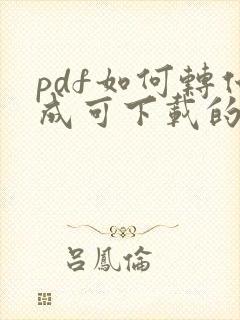 pdf如何轉
成可下載的
呂鳳倫